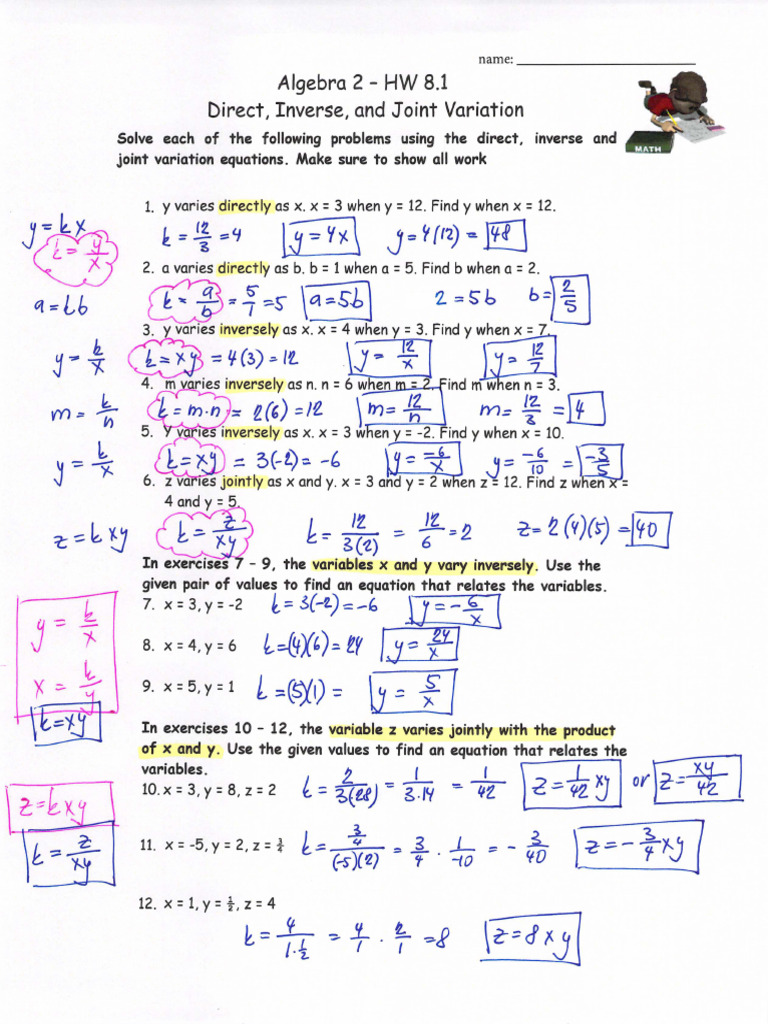 name:
Algebra 2 – HW 8.1
Direct, Inverse, and Joint Variation
MATH
Solve each of the following problems using the direct, inverse and
joint variation equations. Make sure to show all work
1. y varies directly as x. x = 3 when y = 12. Find y when x = 12.
y = kx
k = y/x
k = 12/3 = 4 y = 4x y = 4(12) = 48
2. a varies directly as b. b = 1 when a = 5. Find b when a = 2.
a = kb k = a/b = 5/1 = 5 a = 5b 2 = 5b b = 2/5
3. y varies inversely as x. x = 4 when y = 3. Find y when x = 7.
y = k/x k = xy = 4(3) = 12 y = 12/x y = 12/7
4. m varies inversely as n. n = 6 when m = 2. Find m when n = 3.
m = k/n k = m·n = 2(6) = 12 m = 12/n m = 12/3 = 4
5. Y varies inversely as x. x = 3 when y = -2. Find y when x = 10.
y = k/x k = xy = 3(-2) = -6 y = -6/x y = -6/10 = -3/5
6. z varies jointly as x and y. x = 3 and y = 2 when z = 12. Find z when x =
4 and y = 5.
z = kxy k = z/xy k = 12/3(2) = 12/6 = 2 z = 2(4)(5) = 40
In exercises 7 – 9, the variables x and y vary inversely. Use the
given pair of values to find an equation that relates the variables.
y = k/x
x = k/y
k = xy
7. x = 3, y = -2 k = 3(-2) = -6 y = -6/x
8. x = 4, y = 6 k = (4)(6) = 24 y = 24/x
9. x = 5, y = 1 k = (5)(1) = y = 5/x
In exercises 10 – 12, the variable z varies jointly with the product
of x and y. Use the given values to find an equation that relates the
variables.
z = kxy
k = z/xy
10. x = 3, y = 8, z = 2 k = 2/3(28) = 1/3·14 = 1/42 z = 1/42 xy or z = xy/42
11. x = -5, y = 2, z = ¾ k = 3/4/(-5)(2) = 3/4 · 1/-10 = - 3/40 z = - 3/4 xy
12. x = 1, y = ½, z = 4
k = 4/1·1/2 = 4/1 · 2/1 = 8 z = 8xy